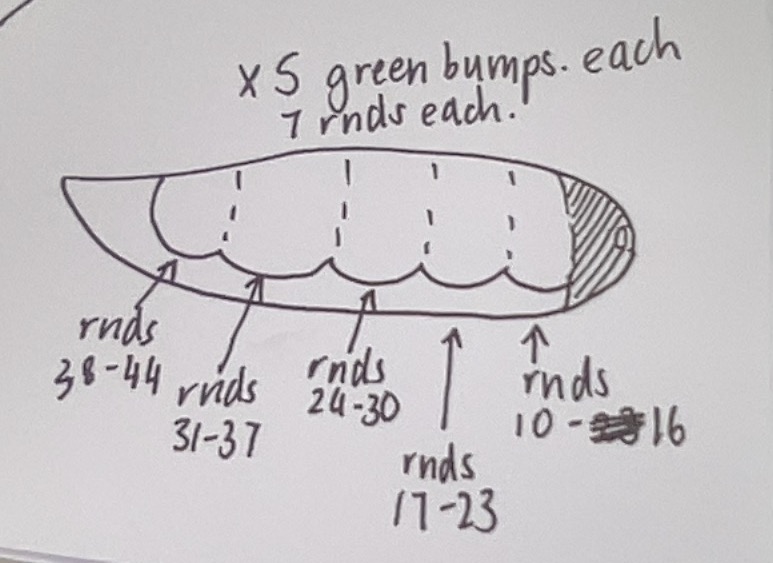 x 5 green bumps. each
7 rnds each.
rnds
38-44
rnds
31-37
rnds
24-30
rnds
17-23
rnds
10 - 16